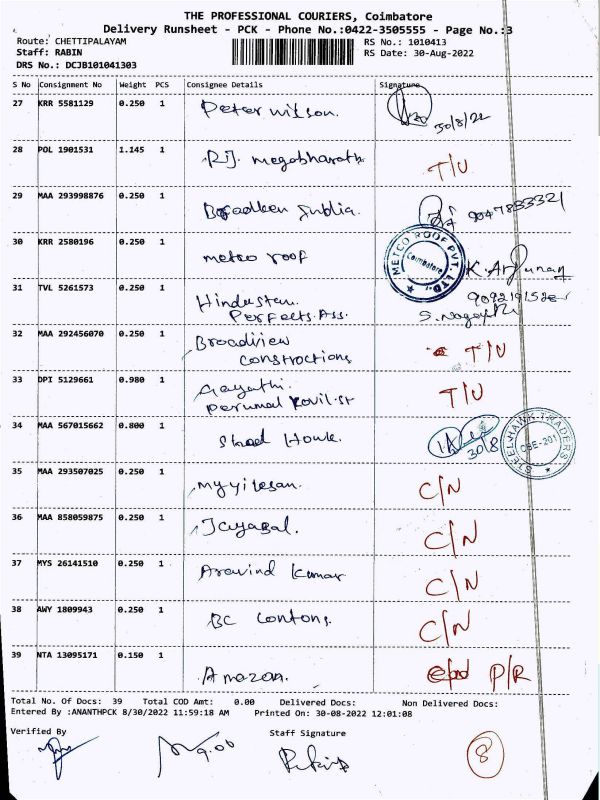 THE PROFESSIONAL COURIERS, Coimbatore
Delivery Runsheet - PCK - Phone No.:0422-3505555 - Page No.:3
Route: CHETTIPALAYAM RS No.: 1010413
Staff: RABIN RS Date: 30-Aug-2022
DRS No.: DCJB101041303
S No Consignment No Weight PCS Consignee Details Signature
27 KRR 5581129 0.250 1 Peter wilson. 30/8/22
28 POL 1901531 1.145 1 megabharath T/U
29 MAA 293998876 0.250 1 9047833321
30 KRR 2580196 0.250 1 metco roof METCO ROOF PVT. LTD. Coimbatore K. Arjunan
31 TVL 5261573 0.250 1 Hindustan.
Perfects. Ass.
32 MAA 292456070 0.250 1 Broadview T/U
Constructions
33 DPI 5129661 0.980 1 Gayathi. T/U
Perumal Kovil.st
34 MAA 567015662 0.800 1 30/8 STEELHAWK TRADERS CBE-201
35 MAA 293507025 0.250 1 C/N
36 MAA 858059875 0.250 1 C/N
37 MYS 26141510 0.250 1 Aravind Kumar C/N
38 AWY 1809943 0.250 1 BC Contons. C/N
39 NTA 13095171 0.150 1 Amazon. P/R
Total No. Of Docs: 39 Total COD Amt: 0.00 Delivered Docs: Non Delivered Docs:
Entered By :ANANTHPCK 8/30/2022 11:59:18 AM Printed On: 30-08-2022 12:01:08
Verified By Staff Signature
9.00
8